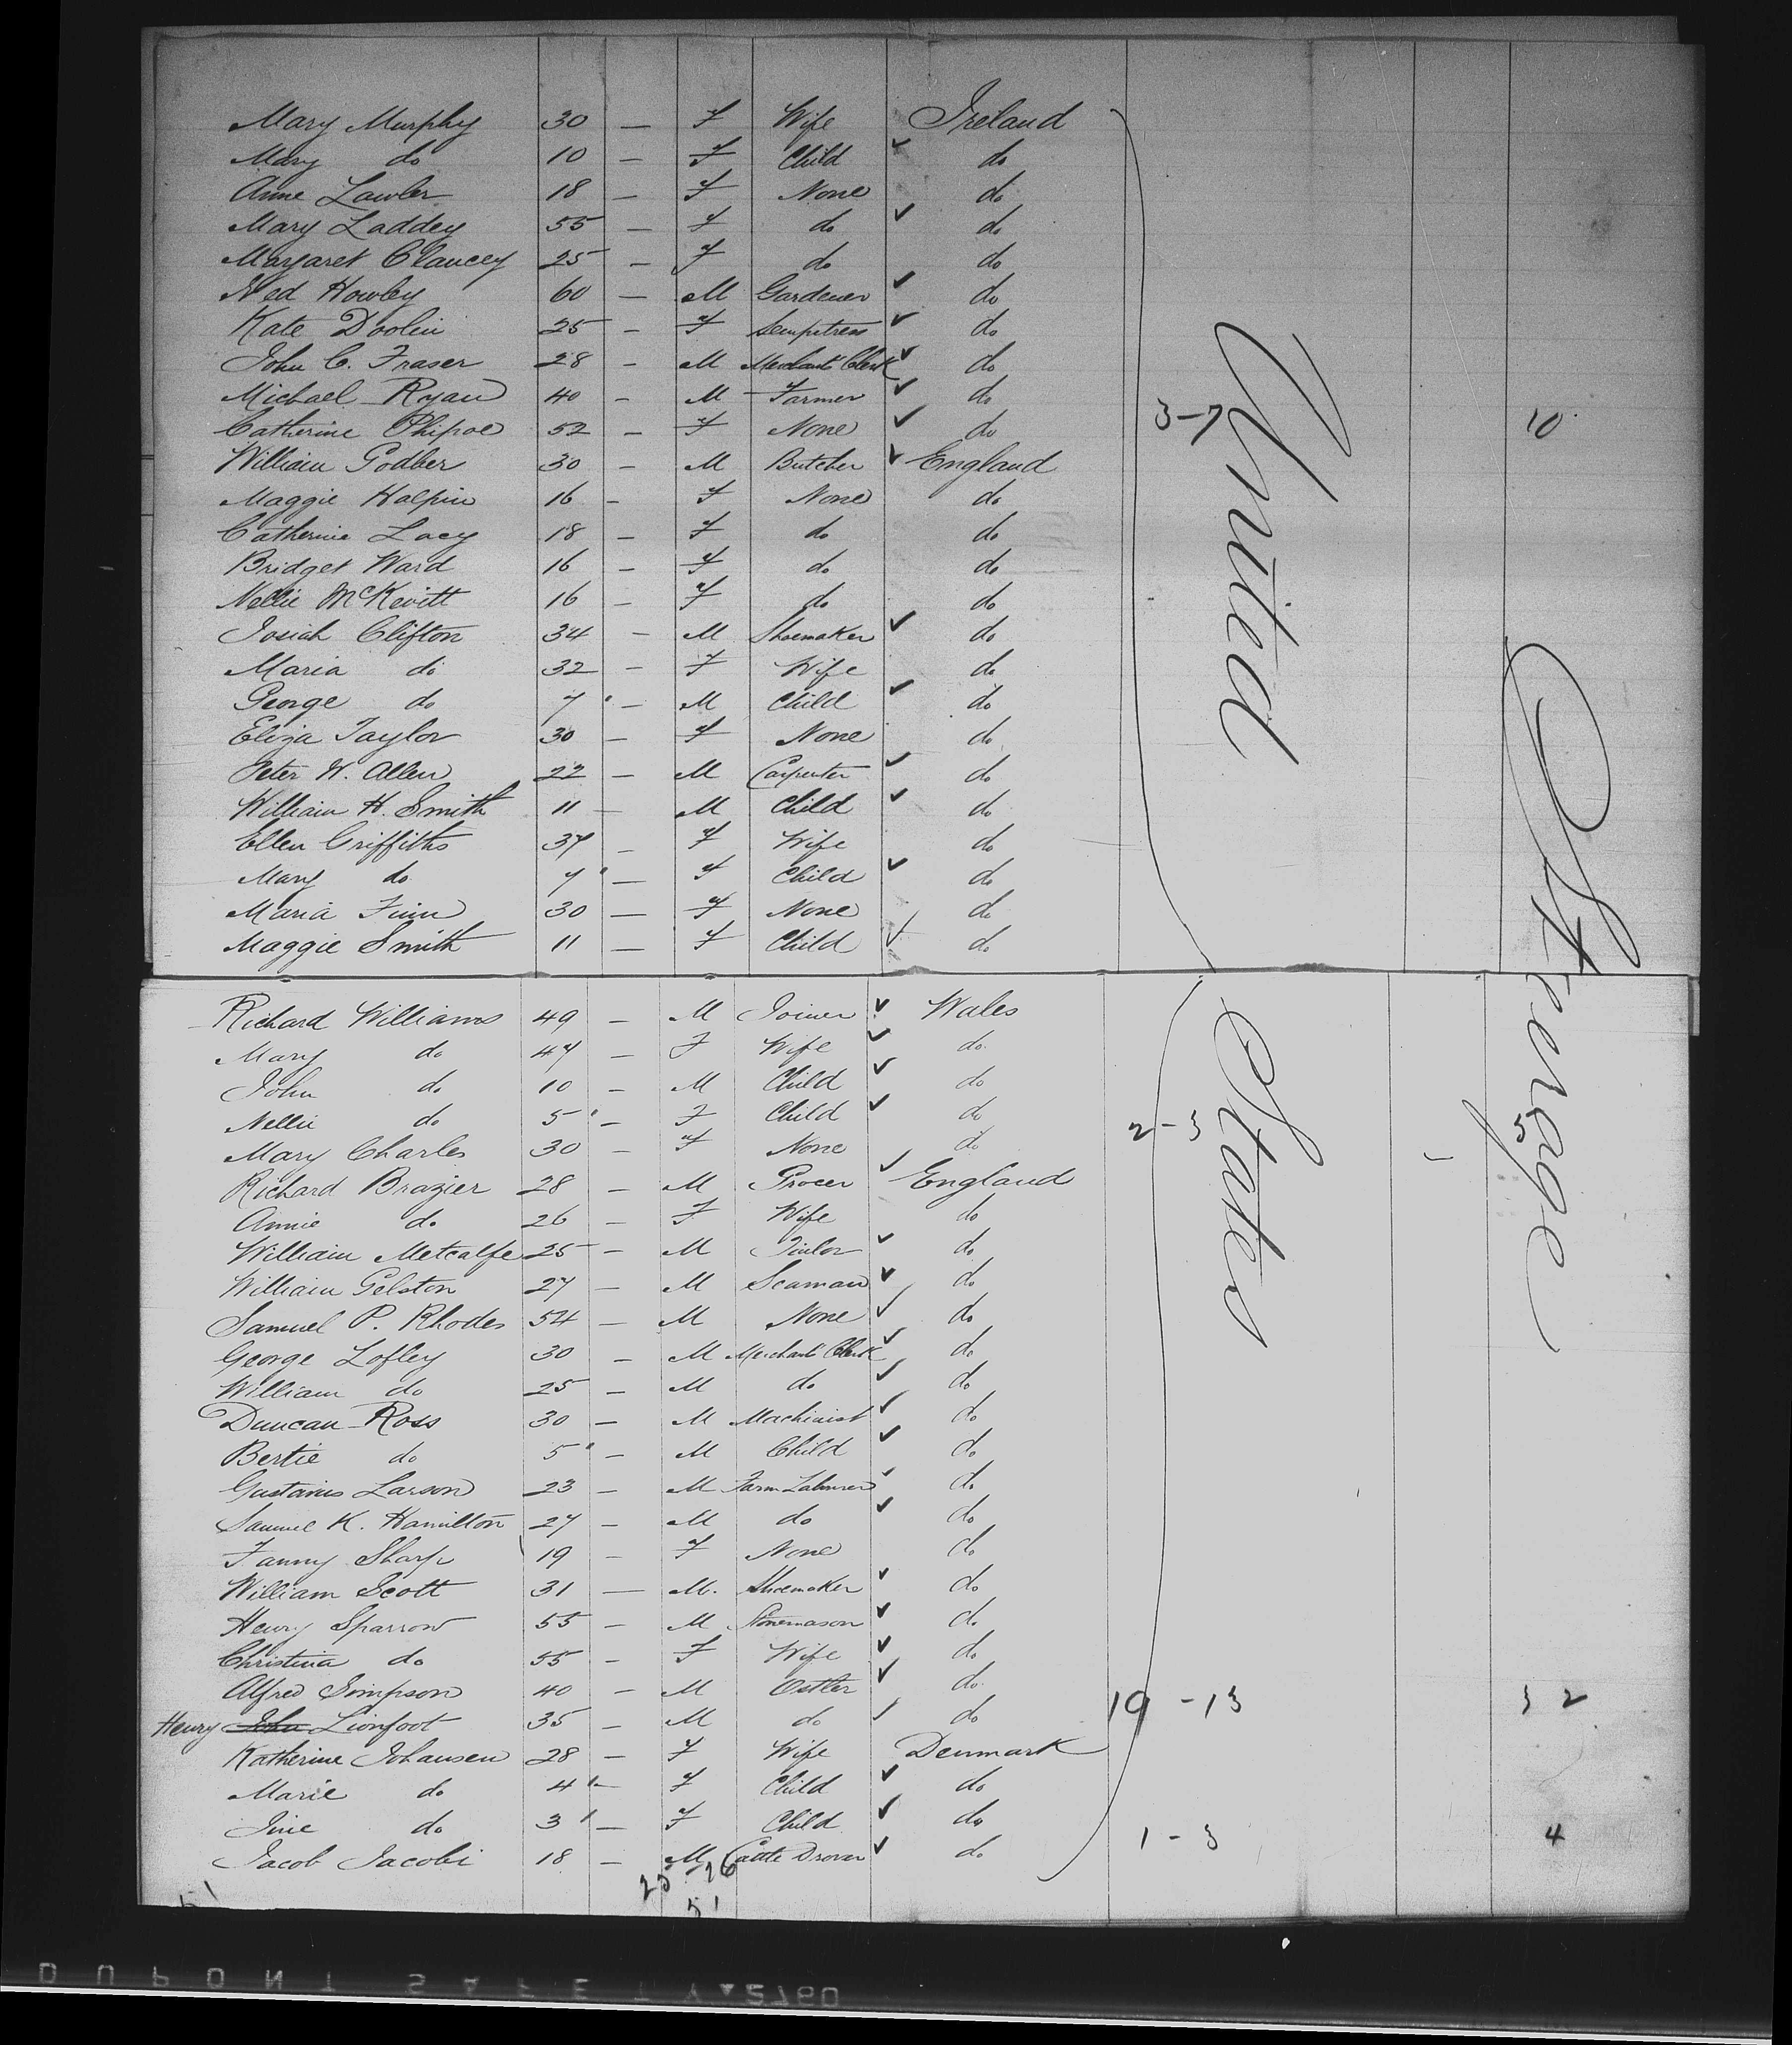 Mary Murphy 30 — F Wife Ireland
Mary do 10 — F Child ✓ do
Anne Lawler 18 — F None do
Mary Laddey 55 — F do ✓ do
Margaret Clancey 25 — F do do
Ned Howley 60 — M Gardener ✓ do
Kate Doolin 25 — F Sempstress ✓ do
John C. Fraser 28 — M Merchants Clerk ✓ do
Michael Ryan 40 — M Farmer ✓ do
Catherine Phipoe 52 — F None ✓ do 3-7 10
William Godber 30 — M Butcher ✓ England
Maggie Halpin 16 — F None do
Catherine Lacy 18 — F do do
Bridget Ward 16 — F do do
Nellie McKevitt 16 — F do do
Josiah Clifton 34 — M Shoemaker ✓ do
Maria do 32 — F Wife do
George do 7 — M Child ✓ do
Eliza Taylor 30 — F None do
Peter W. Allen 22 — M Carpenter ✓ do
William H. Smith 11 — M Child ✓ do
Ellen Griffiths 37 — F Wife do
Mary do 7 — F Child ✓ do
Maria Finn 30 — F None do
Maggie Smith 11 — F Child ✓ do
United States
Steerage
Richard Williams 49 — M Joiner ✓ Wales
Mary do 47 — F Wife ✓ do
John do 10 — M Child ✓ do
Nellie do 5 — F Child ✓ do
Mary Charles 30 — F None do 2-3 5
Richard Brazier 28 — M Grocer ✓ England
Annie do 26 — F Wife do
William Metcalfe 25 — M ✓ do
William Gelston 27 — M Seaman ✓ do
Samuel P. Rhodes 54 — M None ✓ do
George Lofley 30 — M Merchants Clerk ✓ do
William do 25 — M do ✓ do
Duncan Ross 30 — M Machinist ✓ do
Bertie do 5 — M Child ✓ do
Gustavus Larson 23 — M Farm Labourer ✓ do
Samuel K. Hamilton 27 — M do ✓ do
Fanny Sharp 19 — F None do
William Scott 31 — M. Shoemaker ✓ do
Henry Sparrow 55 — M Stonemason ✓ do
Christina do 55 — F Wife ✓ do
Alfred Simpson 40 — M Ostler ✓ do 19-13 32
Henry John Lionfoot 35 — M do ✓ do
Katherine Johansen 28 — F Wife Denmark
Marie do 4 — F Child ✓ do
Jine do 3 — F Child ✓ do
Jacob Jacobi 18 — M Cattle Drover ✓ do 1-3 4
51 25-26
51
DUPONT SAFETY 2760